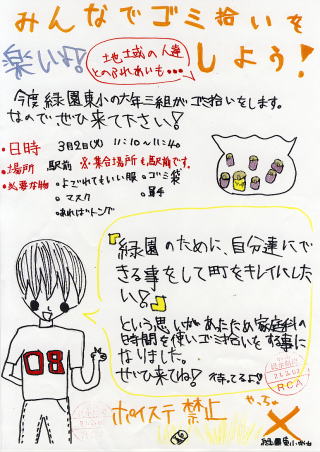 みんなでゴミ拾いを
楽しいよ!!
しよう!
地域の人達
とのふれあいも•••
今度緑園東小の六年三組がゴミ拾いをします。
なので、ぜひ来て下さい!
•日時 3月2日(火) 11:10〜11:40
•場所 駅前 ※集合場所も駅前です。
•必要な物 •よごれてもいい服 •ゴミ袋
•マスク •軍手
•あればトング
『緑園のために、自分達にで
きる事をして町をキレイにした
い!』
という思いがあったため家庭科の
時間を使いゴミ拾いをする事に
なりました。
ぜひ来てね! 待ってるよ!!
08
ポイステ禁止
やっちゃ
RCA